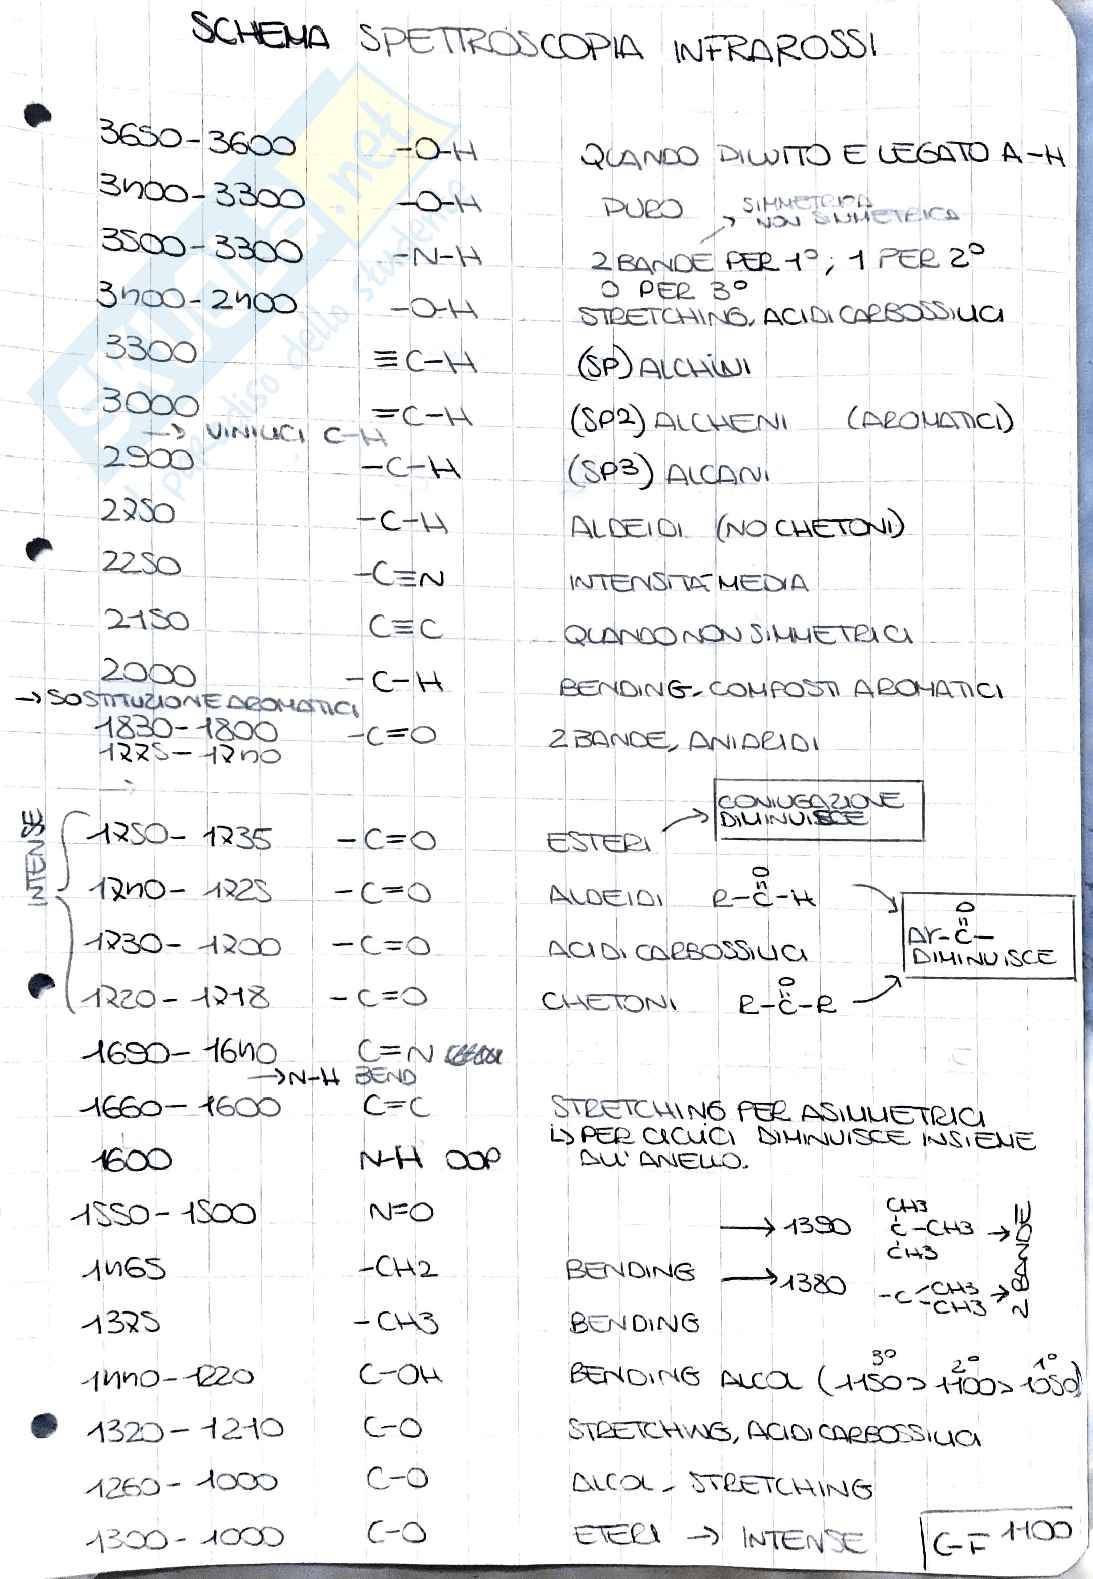 SCHEMA SPETTROSCOPIA INFRAROSSI
3650-3600 -O-H QUANDO DILUITO E LEGATO A -H
3400-3300 -O-H PURO SIMMETRICA
NON SIMMETRICA
3500-3300 -N-H → 2 BANDE PER 1°; 1 PER 2°
0 PER 3°
3400-2400 -O-H STRETCHING, ACIDI CARBOSSILICI
3300 ≡C-H (SP) ALCHINI
3000 =C-H (SP2) ALCHENI (AROMATICI)
→ VINILICI C-H
2900 -C-H (SP3) ALCANI
2750 -C-H ALDEIDI (NO CHETONI)
2250 -C≡N INTENSITÀ MEDIA
2150 C≡C QUANDO NON SIMMETRICI
2000 -C-H BENDING - COMPOSTI AROMATICI
→ SOSTITUZIONE AROMATICI
1830-1800 -C=O 2 BANDE, ANIDRIDI
1775-1740
INTENSE
1750-1735 -C=O ESTERI → CONIUGAZIONE
DIMINUISCE
1740-1725 -C=O ALDEIDI R-C-H
O
1730-1700 -C=O ACIDI CARBOSSILICI
O
Ar-C-
DIMINUISCE
1720-1718 -C=O CHETONI R-C-R
O
1690-1640 C=N
→ N-H BEND
1660-1600 C=C STRETCHING PER ASIMMETRICI
↳ PER CICLICI DIMINUISCE INSIEME
ALL'ANELLO.
1600 N-H OOP
1550-1500 N=O
→ 1390 CH3
C-CH3 →
CH3
2 BANDE
1465 -CH2 BENDING → 1380 -C-CH3 →
CH3
1375 -CH3 BENDING
3° 2° 1°
1440-1220 C-OH BENDING ALCOL (1150>1100>1050)
1320-1210 C-O STRETCHING, ACIDI CARBOSSILICI
1260-1000 C-O ALCOL - STRETCHING
1300-1000 C-O ETERI → INTENSE
C-F 1100
SKUOLA.net
il paradiso dello studente